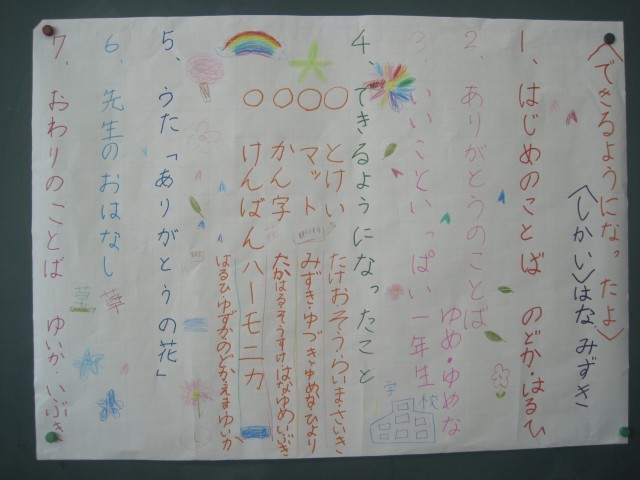 〈できるようになったよ〉
〈しかい〉はな・みずき
1、はじめのことば のどか・はるひ
2、ありがとうのことば
ゆめ・ゆめな
3、いいこといっぱい一年生
学校
4、できるようになったこと
○とけい たけおそうらいまさいき
○マット みずき・ゆづき・ゆめなひより
○かん字
○けんばんハーモニカ
5、うた「ありがとうの花」
6、先生のおはなし
7、おわりのことば ゆいか・いぶき